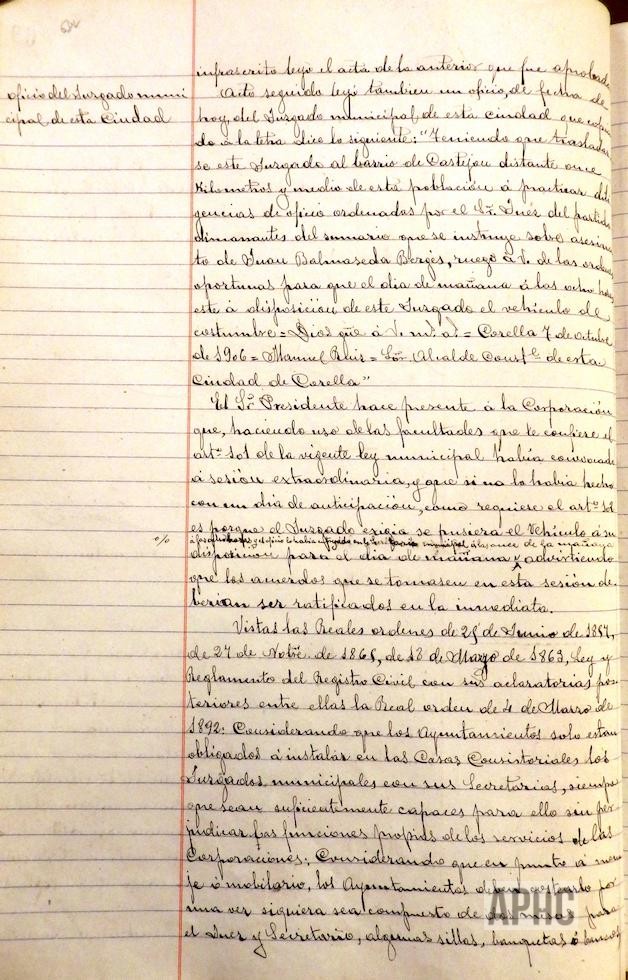 infrascrito leyó el acta de la anterior que fue aprobada
oficio del Juzgado muni
cipal de esta Ciudad
Acto seguido leyó tambien un oficio, de fecha de
hoy, del Juzgado municipal de esta ciudad que copia
do á la letra dice lo siguiente: "Teniendo que trasladar
se este Juzgado al barrio de Castejon distante once
Kilometros y medio de esta población á practicar dili
gencias de oficio ordenadas por el Sr. Juez del partido
dimanantes del sumario que se instruye sobre asesina
to de Juan Balmaseda Berges, ruego á V. de las ordenes
oportunas para que el dia de mañana á las ocho horas
esté á disposición de este Juzgado el vehículo de
costumbre = Dios gũe á V. m.s a.s = Corella 7 de Octubre
de 1906 = Manuel Ruiz = Sor. Alcalde Constl. de esta
Ciudad de Corella"
El Sr. Presidente hace presente á la Corporación
que, haciendo uso de las facultades que le confiere el
arto. 101 de la vigente ley municipal había convocado
á sesión extraordinaria, y que si no lo había hecho
con un dia de anticipación, como requiere el arto. 102
es porque el Juzgado exigia se pusiera el Vehículo á su
á las ocho horas y el oficio lo habia á las once de la mañana
disposición para el dia de mañana y advirtiendo
que los acuerdos que se tomasen en esta sesión de
berian ser ratificados en la inmediata.
Vistas las Reales ordenes de de Junio de 1857,
de 27 de Novbre. de 1861, de 18 de Mayo de 1863, Ley y
Reglamento del Registro Civil con sus aclaratorias pos
teriores entre ellas la Real orden de 4 de Marzo de
1892: Considerando que los Ayuntamientos solo estan
obligados á instalar en las Casas Consistoriales los
Juzgados municipales con sus Secretarios, siempre
que sean suficientemente capaces para ello sin per
judicar las funciones propias de los servicios de las
Corporaciones; Considerando que en punto á mena
je ó mobilario, los Ayuntamientos deben costearlo por
una vez siquiera sea compuesto de dos mesas para
el Juez y Secretario, algunas sillas, banquetas ó bancos
APHC